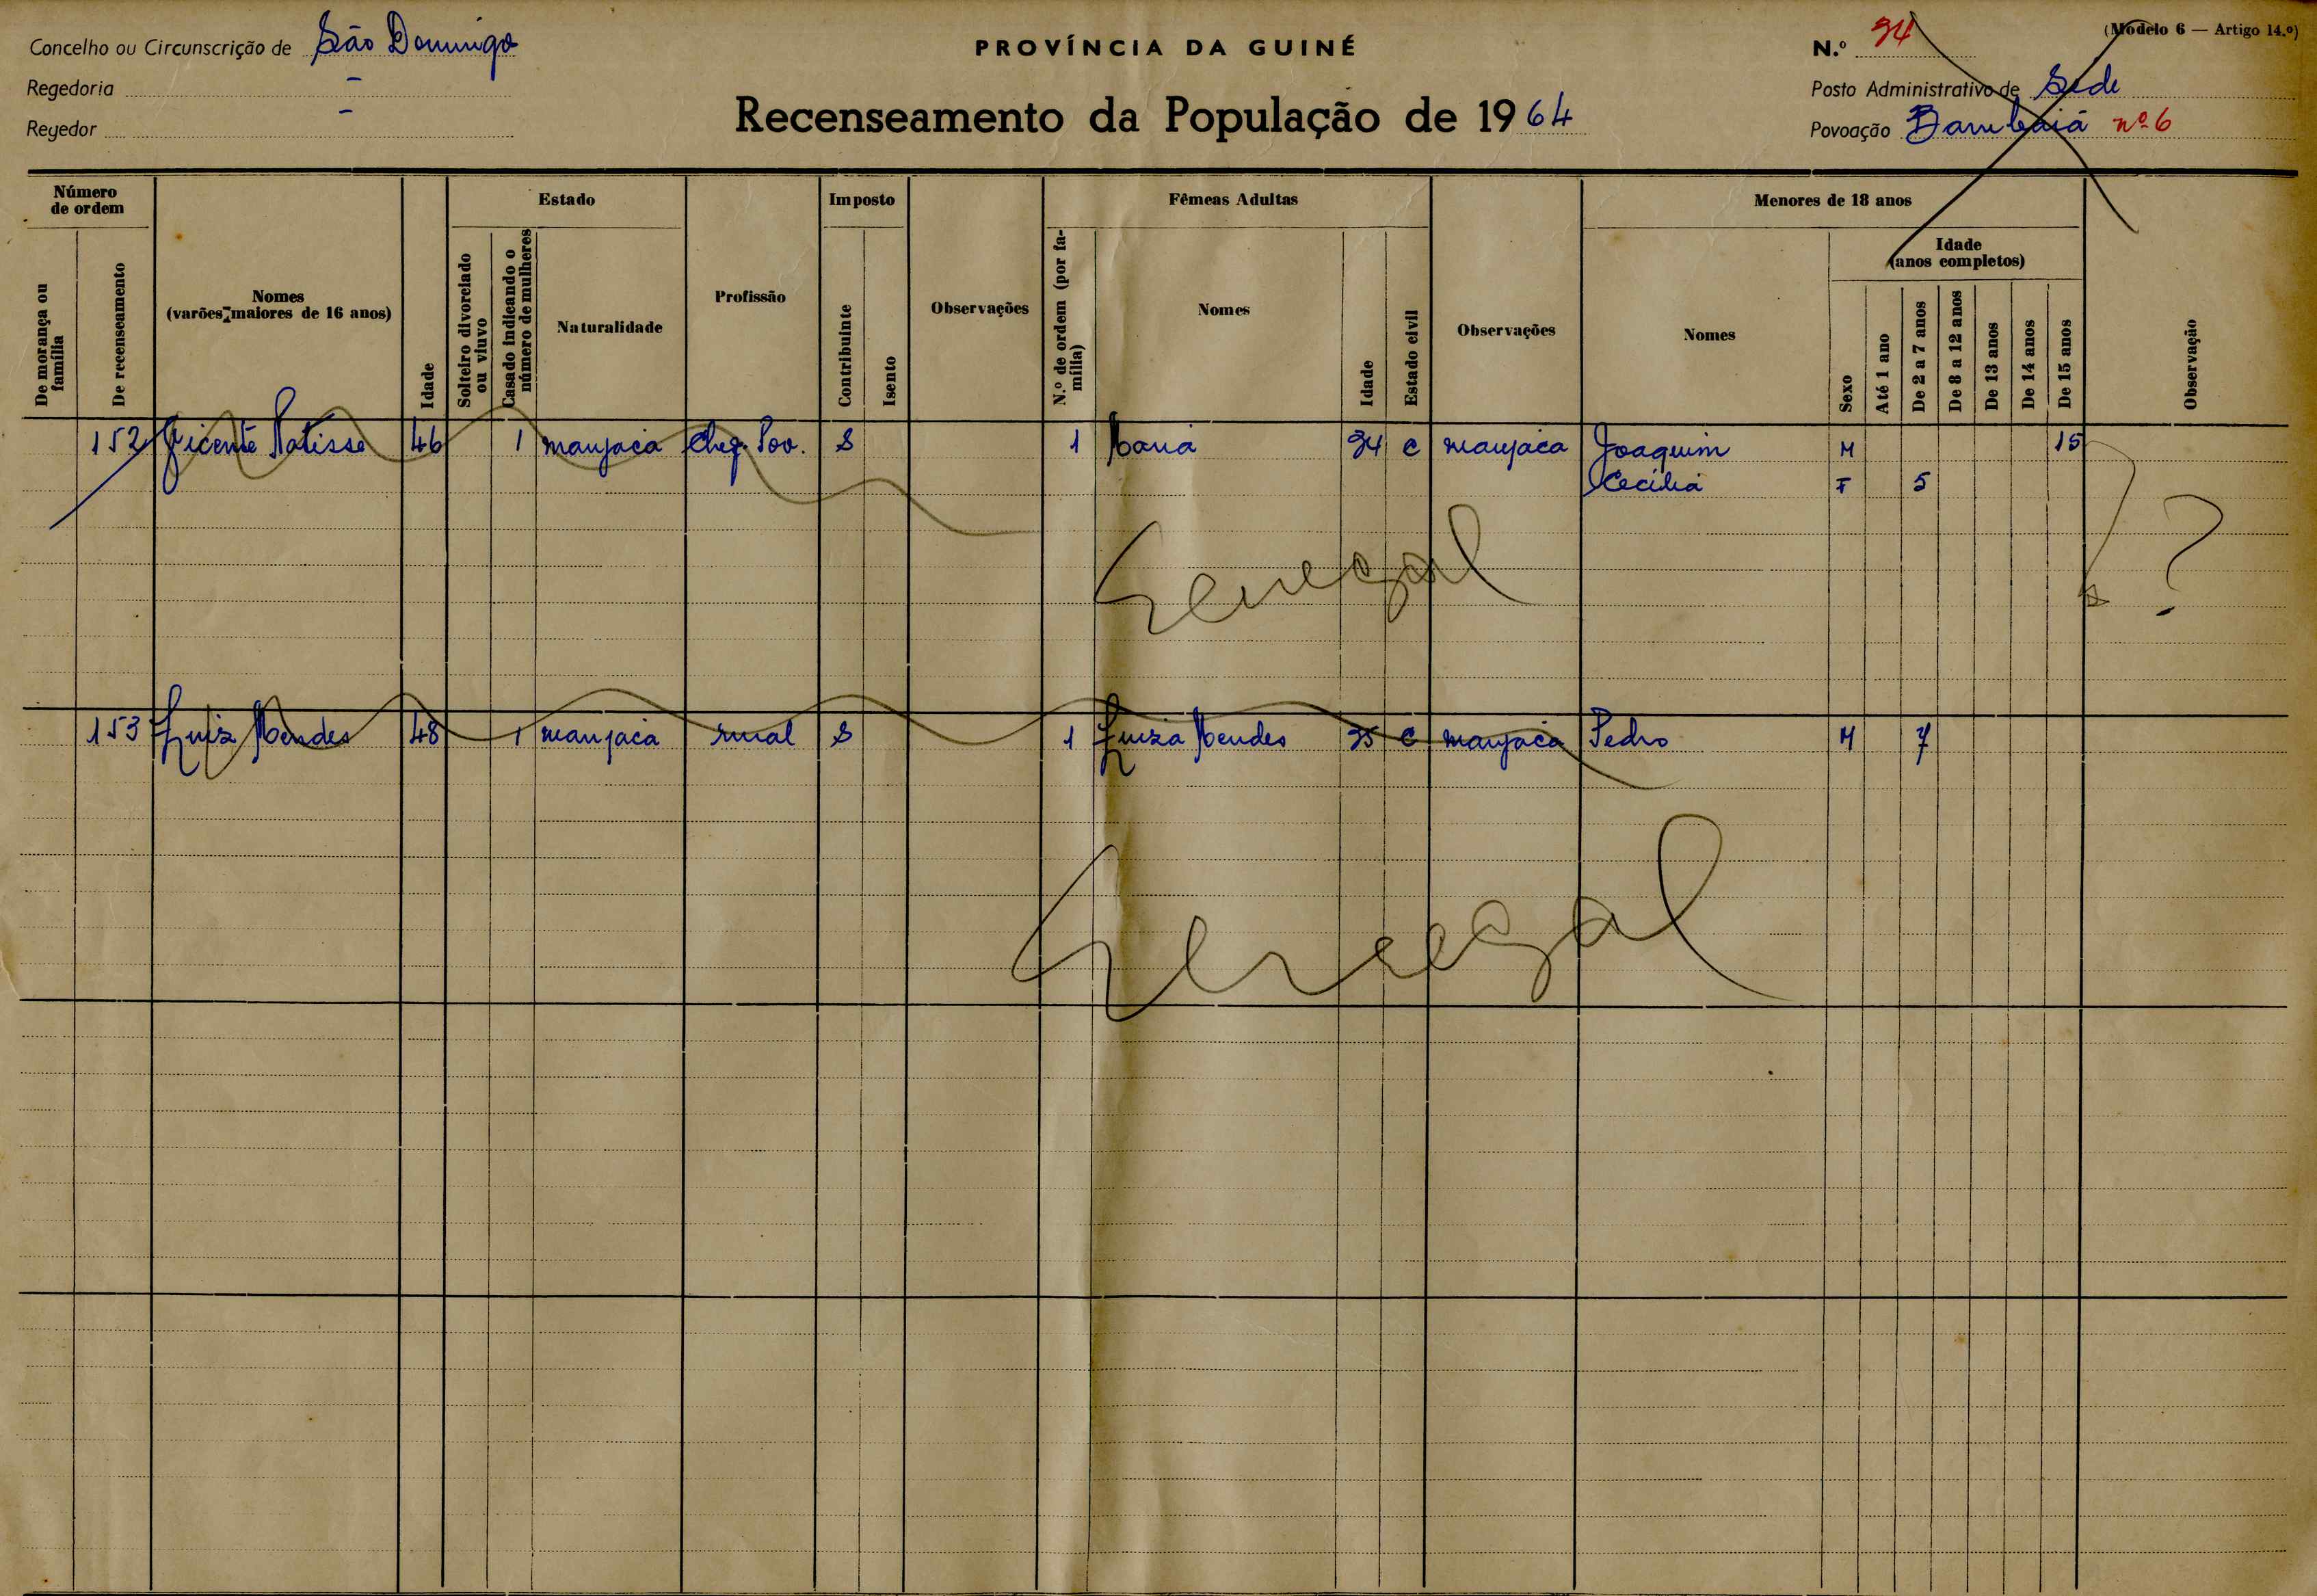 Concelho ou Circunscrição de São Domingos
Regedoria –
Regedor –
PROVÍNCIA DA GUINÉ
Recenseamento da População de 1964
(Modelo 6 — Artigo 14.º)
N.º 34
Posto Administrativo de Sede
Povoação nº 6
Número de ordem
De morança ou família
De recenseamento
Nomes
(varões maiores de 16 anos)
Idade
Estado
Solteiro divorciado ou viuvo
Casado indicando o número de mulheres
Naturalidade
Profissão
Imposto
Contribuinte
Isento
Observações
Fêmeas Adultas
N.º de ordem (por família)
Nomes
Idade
Estado civil
Observações
Menores de 18 anos
Nomes
Sexo
Idade
(anos completos)
Até 1 ano
De 2 a 7 anos
De 8 a 12 anos
De 13 anos
De 14 anos
De 15 anos
Observação
152 Vicente 46 1 manjaca Chef. Pov. S 1 Maria 34 C manjaca Joaquim M 15
Cecilia F 5
Senegal ?
153 Luiz Mendes 48 1 manjaca rural S 1 Luiza Mendes 35 C manjaca Pedro M 7
Senegal